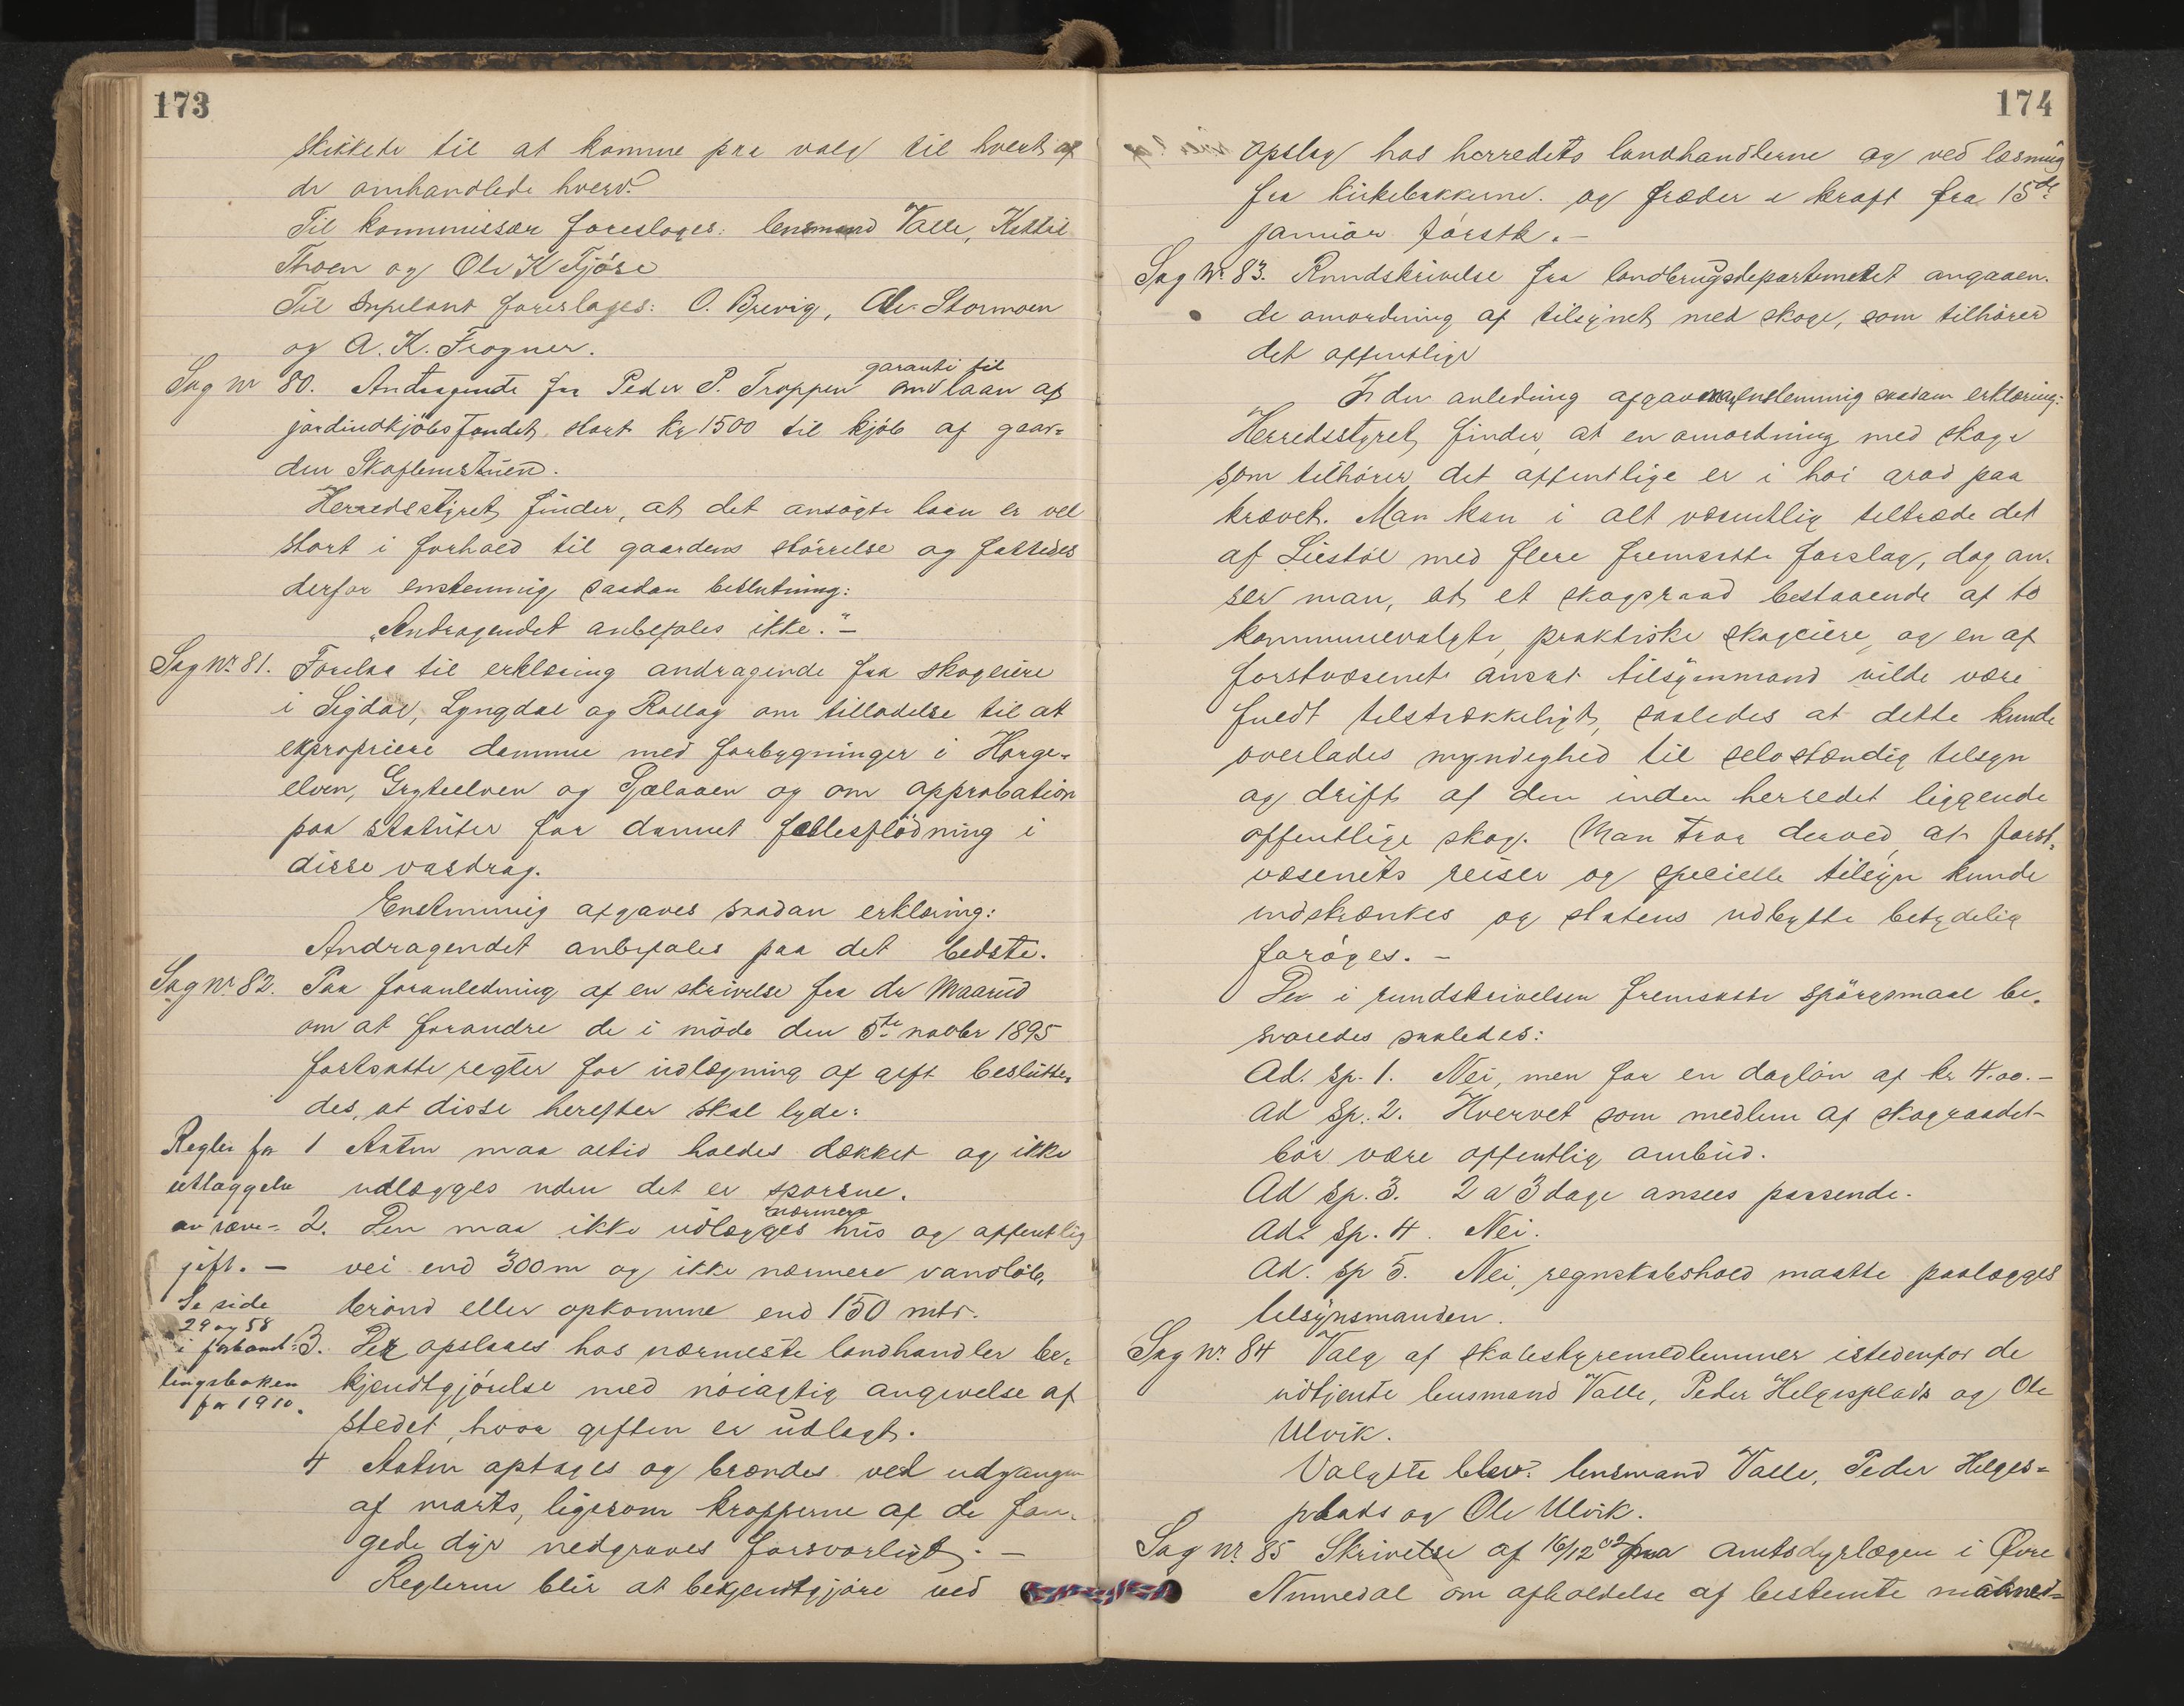 173
skikkede til at komme paa valg til hvert af
de omhandlede hverv.
Til kommissær foreslages: lensmand Valle, Kittil
Thoen og Ole K Fjøse
Til suplant foreslages: O. Brevig, Ole Stormoen
og A. K. Frogner.
garanti til
Sag nr 80. Andragende fra Peder P. Troppen om laan af
jordindkjøbsfondet stort kr 1500 til kjøb af gaar-
den Skaflemstuen.
Herredsstyret finder, at det ansøgte laan er vel
stort i forhold til gaardens størrelse og fattedes
derfor enstemmig saadan beslutning:
"Andragendet anbefales ikke." -
Sag nr 81. Forelaa til erklæring andragende fra skogeiere
i Sigdal, Lyngdal og Rollag om tilladelse til at
expropriere damme med forbygninger i Horge-
elven, Gryteelven og Sjælaaen og om approbation
paa statuter for dannet fællesflödning i
disse vasdrag.
Enstemmig afgaves saadan erklæring:
Andragendet anbefales paa det bedste.
Sag nr 82. Paa foranledning af en skrivelse fra dr Maarud
om at forandre de i møde den 5te novbr 1895
fastsatte regler for udlægning af gift beslutte-
des, at disse herefter skal lyde:
Regler for
utlæggelse
av ræve-
gift. -
Se side
29 og 58
i forhand-
lingsboken
for 1910.
1 Aaten maa altid holdes dækket og ikke
udlægges uden det er sporsne.
nærmere
2. Den maa ikke udlægges hus og offentlig
vei end 300 m og ikke nærmere vandløb,
brönd eller opkomme end 150 mtr.
3. Der opslaaes hos nærmeste landhandler be-
kjendtgjørelse med nöiagtig angivelse af
stedet, hvor giften er udlagt.
4 Aaten optages og brændes ved udgangen
af marts, ligesom kropperne af de fan-
gede dyr nedgraves forsvarligt. -
Reglerne blir at bekjendtgjøre ved
174
opslag hos herredets landhandlerne og ved læsning
fra kirkebakkerne. og træder i kraft fra 15de
januar førstk. -
Sag nr. 83. Rundskrivelse fra landbrugsdepartementet angaaen-
de omordning af tilsynet med skoge, som tilhører
det offentlige
I den anledning afgav man enstemmig saadan erklæring:
Herredsstyret finder, at en omordning med skoge
som tilhører det offentlige er i høi grad paa
krævet. Man kan i alt væsentlig tiltræde det
af Liestøl med flere fremsatte forslag, dog an-
ser man, at et skograad bestaaende af to
kommunevalgte, praktiske skogeiere, og en af
forstvæsenet ansat tilsynsmand vilde være
fuldt tilstrækkeligt, saaledes at dette kunde
overlades myndighed til selvstændig tilsyn
og drift af den inden herredet liggende
offentlige skog. Man tror derved, at forst-
væsenets reiser og specielle tilsyn kunde
indskrænkes og statens udbytte betydelig
forøges. -
De i rundskrivelsen fremsatte spörgsmaal be-
svaredes saaledes:
Ad. sp. 1. Nei, men for en daglön af kr 4.00. -
Ad sp. 2. Hvervet som medlem af skograadet
bör være offentlig ombud.
Ad sp. 3. 2 a 3 dage ansees passende.
Ad. sp. 4. Nei.
Ad. sp 5. Nei, regnskabshold maatte paalægges
tilsynsmanden.
Sag nr. 84 Valg af skolestyremedlemmer istedenfor de
udtjente lensmand Valle, Peder Helgesplads og Ole
Ulvik.
Valgte blev: lensmand Valle, Peder Helges-
plads og Ole Ulvik.
Sag nr. 85 Skrivelse af 16/12 02 fra amtsdyrlægen i Øvre
Numedal om afholdelse af bestemte maaned-